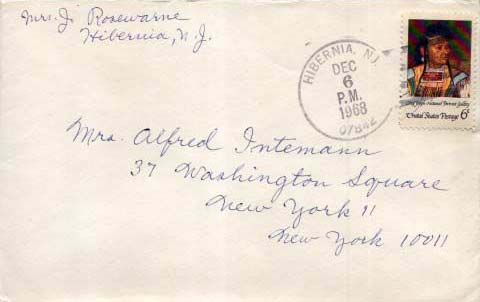 Mrs. J. Rosewarne
Hibernia, N.J.
HIBERNIA, N.J.
DEC
6
P.M.
1968
07842
National Portrait Gallery
United States Postage 6c
Mrs. Alfred Intemann
37 Washington Square
New York 11
New York 10011